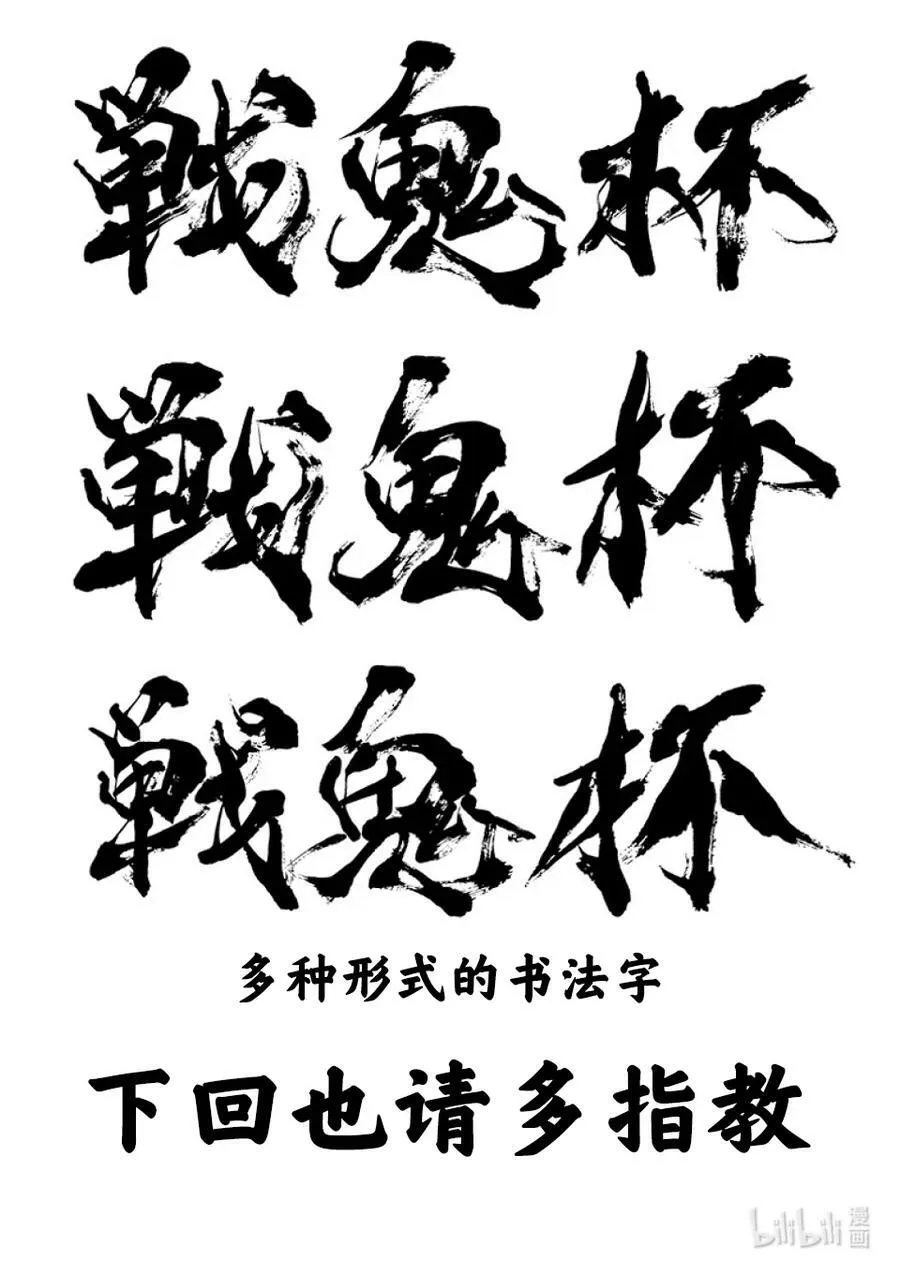 戦鬼杯
戦鬼杯
戦鬼杯
多种形式的书法字
下回也请多指教
bilibili 漫画